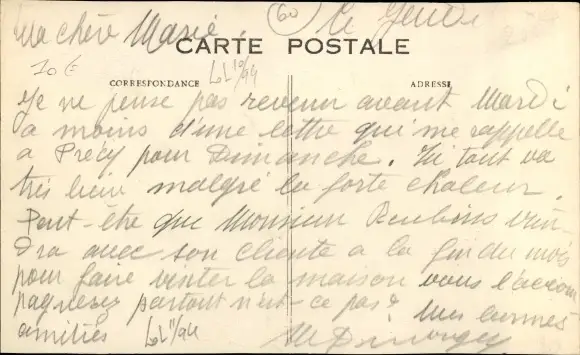 Ma chère Marie, (60) Le Jeudi
CARTE POSTALE
10 € LL 10/94
CORRESPONDANCE ADRESSE
Je ne pense pas revenir avant Mardi
a moins d'une lettre qui me rappelle
a Précy pour Dimanche. Ici tout va
très bien malgré la forte chaleur.
Peut-être que Monsieur vien-
dra avec son cliente a la fin du mois
pour faire visiter la maison vous l'accom
pagnerez partout n'est-ce pas?
amitiés LL 11/94